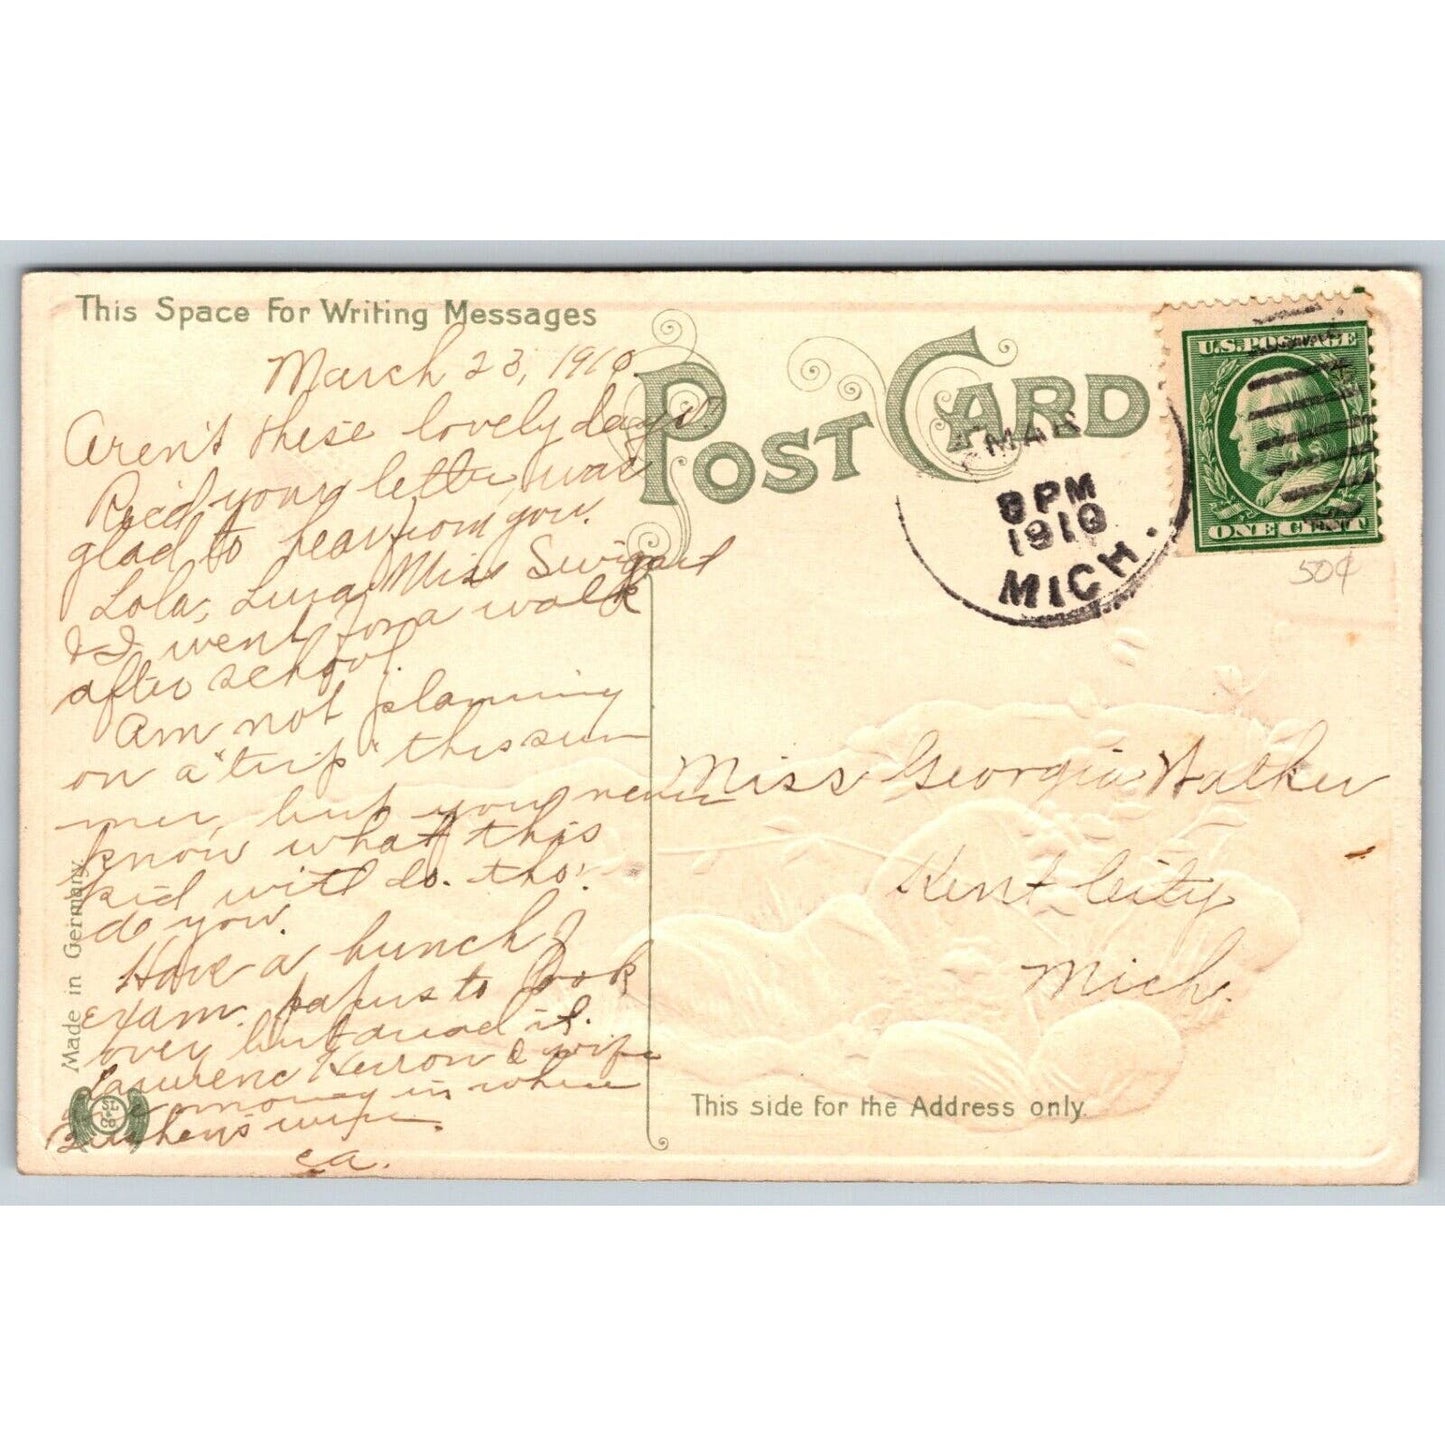 This Space For Writing Messages
POST CARD
March 23, 1910.
Aren't these lovely days.
Rec'd your letter, was
glad to hear from you.
Lola, Miss Swigart
& I went for a walk
after school.
Am not planning
on a "trip" this sum
mer, but you never
know what this
kid will do. tho'
do you.
Have a bunch of
exam. papers to look
over but dread it.
Lawrence Herron & wife
are moving in where
wife
ca.
Made in Germany.
MAR
8 PM
1910
MICH.
U.S. POSTAGE
ONE CENT
50¢
Miss Georgia Walker
Kent City
Mich.
This side for the Address only.